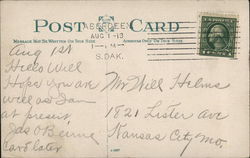 POST CARD
MESSAGE MAY BE WRITTEN ON THIS SIDE
ADDRESS ONLY ON THIS SIDE
ABERDEEN
AUG 1 13
S. DAK.
Aug 1st
Hello Will
Hope you are
well as I am
at present
Jas O'Beirne
Card later
Mr Will Helms
1821 Lister ave
Kansas City Mo.